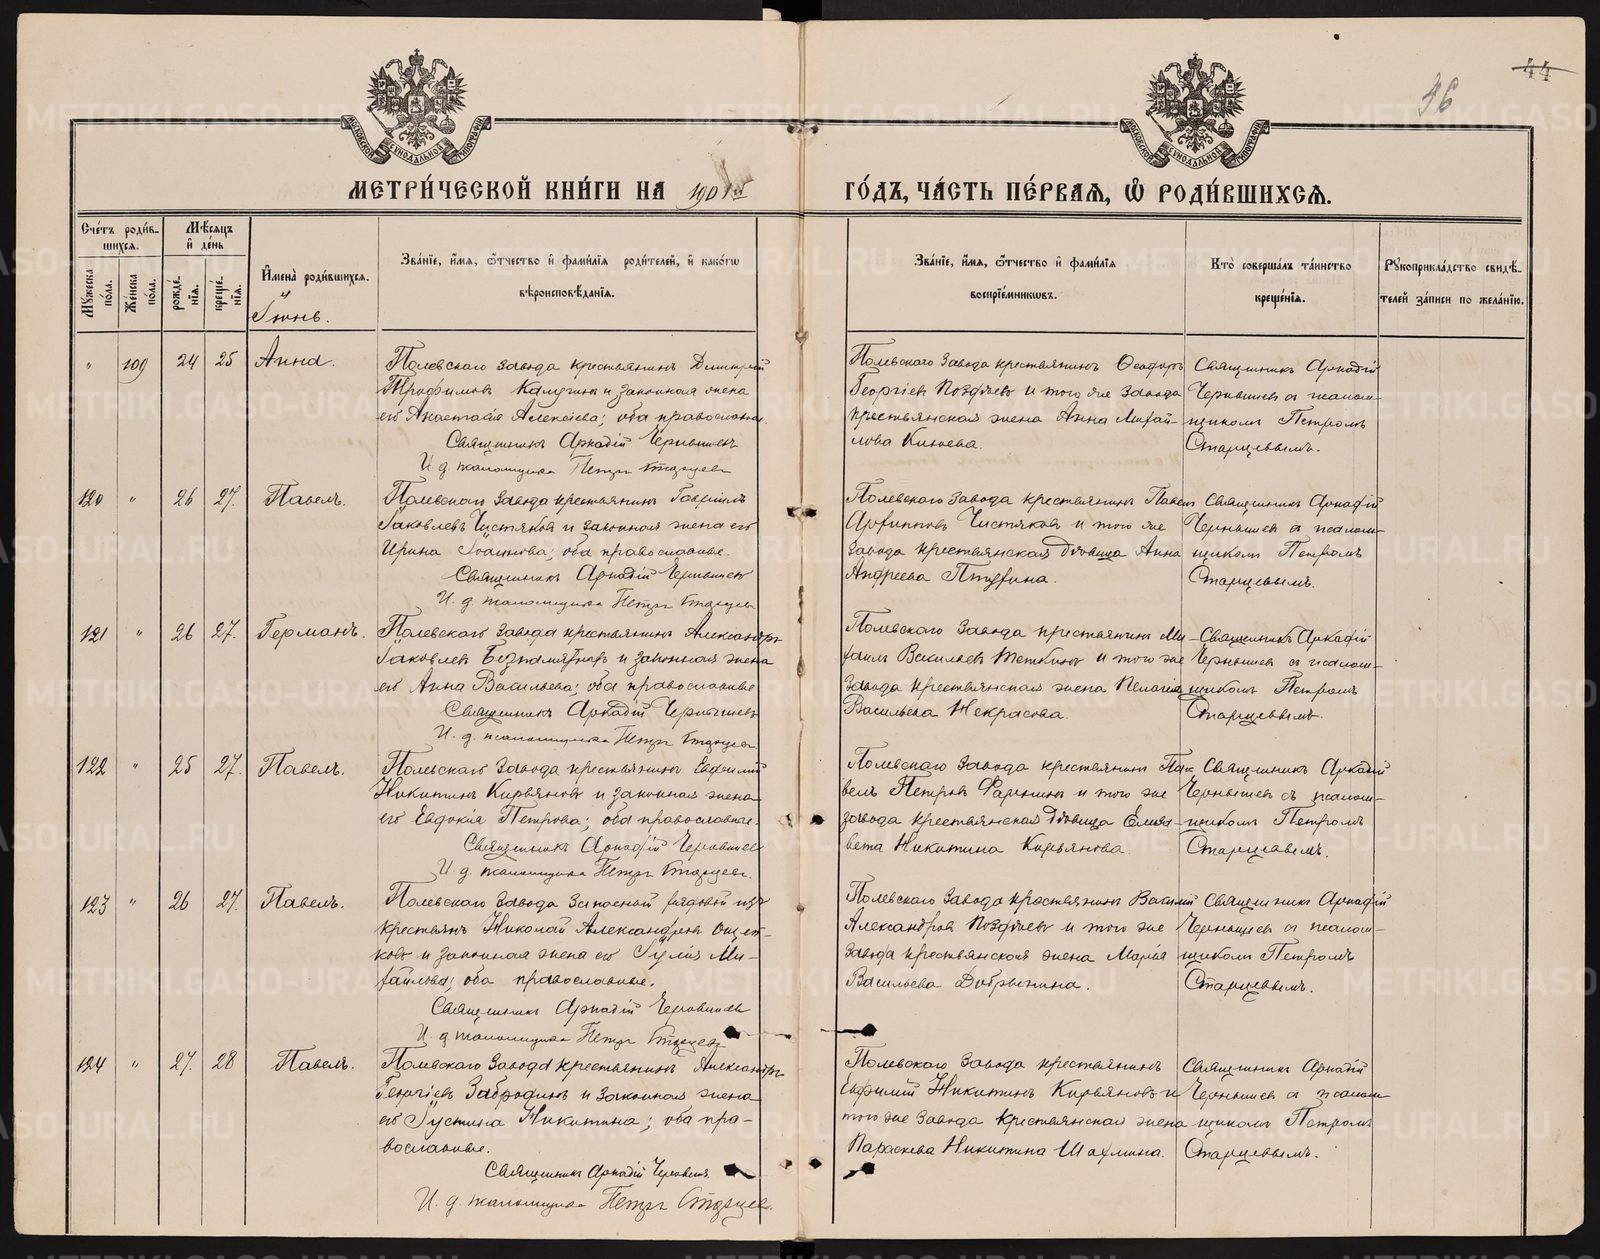 44
46
МЕТРИ́ЧЕСКОЙ КНИ́ГИ НА 1901й ГО́ДЪ, ЧА́СТЬ ПЕ́РВАЯ, Ѡ РОДИ́ВШИХСЯ.
Сче́тъ роди́в-
шихся.
Му́жеска по́ла.
Же́нска по́ла.
Мѣ́сяцъ и де́нь
рожде́-
нія.
креще́-
нія.
И́мена роди́вшихся.
Іюнь.
Зва́ніе, и́мя, о́тчество и фами́лія роди́телей, и како́гѡ
вѣроисповѣ́данія.
Зва́ніе, и́мя, о́тчество и фами́лія
воспріе́мниковъ.
Кто̀ соверша́лъ та́инство
креще́нія.
Рукоприкла́дство свидѣ́-
телей за́писи по жела́нію.
" 109 24 25 Анна.
Полевскаго завода крестьянинъ Димитрій
Трофимовъ Калугинъ и законная жена
его Анастасія Алексѣева; оба православные.
Священникъ Аркадій Чернышевъ
И. д. псаломщика Петръ Старцевъ
Полевскаго завода крестьянинъ Ѳеодоръ
Георгіевъ Поздѣевъ и того же завода
крестьянская жена Анна Михай-
лова Князева.
Священникъ Аркадій
Чернышевъ съ псалом-
щикомъ Петромъ
Старцевымъ.
120 " 26 27. Павелъ.
Полевскаго завода крестьянинъ Гавріилъ
Іаковлевъ Чистяковъ и законная жена его
Ирина Іоаннова; оба православные.
Священникъ Аркадій Чернышевъ
И. д. псаломщика Петръ Старцевъ
Полевскаго завода крестьянинъ Павелъ
Чистяковъ и того же
завода крестьянская дѣвица Анна
Андреева Птухина.
Священникъ Аркадій
Чернышевъ съ псалом-
щикомъ Петромъ
Старцевымъ.
121 " 26 27. Германъ.
Полевскаго завода крестьянинъ Александръ
Іаковлевъ Безпамятныхъ и законная жена
его Анна Васильева; оба православные
Священникъ Аркадій Чернышевъ
И. д. псаломщика Петръ Старцевъ
Полевскаго завода крестьянинъ Ми-
хаилъ Васильевъ и того же
завода крестьянская жена Пелагія
Васильева Некрасова.
Священникъ Аркадій
Чернышевъ съ псалом-
щикомъ Петромъ
Старцевымъ.
122 " 25 27. Павелъ.
Полевскаго завода крестьянинъ Евфимій
Никитинъ Кирьяновъ и законная жена
его Евдокія Петрова; оба православные.
Священникъ Аркадій Чернышевъ
И. д. псаломщика Петръ Старцевъ.
Полевскаго завода крестьянинъ Па-
велъ Петровъ и того же
завода крестьянская дѣвица Елиза-
вета Никитина Кирьянова.
Священникъ Аркадій
Чернышевъ съ псалом-
щикомъ Петромъ
Старцевымъ.
123 " 26 27. Павелъ.
Полевскаго завода запасный рядовой изъ
крестьянъ Николай Александровъ Ощеп-
ковъ и законная жена его Іулія Ми-
хайлова; оба православные.
Священникъ Аркадій Чернышевъ
И. д. псаломщика Петръ Старцевъ
Полевскаго завода крестьянинъ Василій
Александровъ Поздѣевъ и того же
завода крестьянская жена Марія
Васильева Добрынина.
Священникъ Аркадій
Чернышевъ съ псалом-
щикомъ Петромъ
Старцевымъ.
124 " 27. 28 Павелъ.
Полевскаго завода крестьянинъ Александръ
Георгіевъ Забродинъ и законная жена
его Іустина Никитина; оба пра-
вославные.
Священникъ Аркадій Чернышевъ
И. д. псаломщика Петръ Старцевъ.
Полевскаго завода крестьянинъ
Евфимій Никитинъ Кирьяновъ и
того же завода крестьянская жена
Параскева Никитина Шахмина.
Священникъ Аркадій
Чернышевъ съ псалом-
щикомъ Петромъ
Старцевымъ.
METRIKI.GASO-URAL.RU